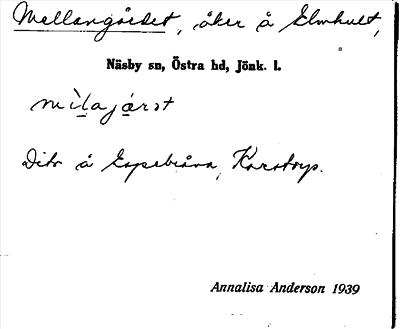 Mellangärdet, åker å Elmhult,
Näsby sn, Östra hd, Jönk. l.
Dito å Espebråna, Karstorp.
Annalisa Anderson 1939